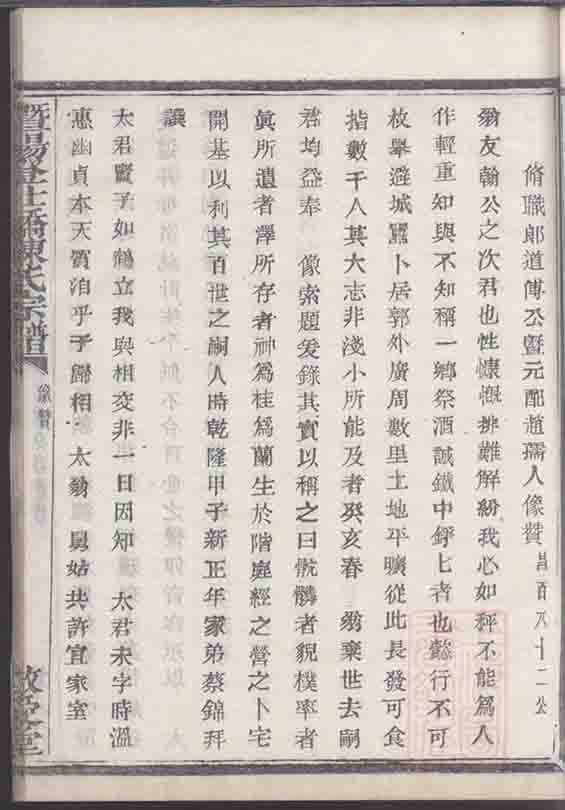 脩職郎道傅公暨元配趙孺人像贊 昌百八十二公
翁友翰公之次君也性慷慨排難解紛我心如秤不能爲人
作輕重知與不知稱一鄉祭酒誠鐵中錚匕者也懿行不可
枚舉避城囂卜居郭外廣周數里土地平曠從此長發可食
指數千人其大志非淺小所能及者癸亥春 翁棄世去嗣
君均益奉 像索題爰錄其實以稱之曰骯髒者貌樸率者
眞所遺者澤所存者神爲桂爲蘭生於階庭經之營之卜宅
開基以利其百世之嗣人時乾隆甲子新正年家弟蔡錦拜
譔
太君賢子如鶴立我與相交非一日因知 太君未字時溫
惠幽貞本天質洎乎于歸相 太翁 舅姑共許宜家室
暨陽 陳氏宗譜
像贊
敦 堂